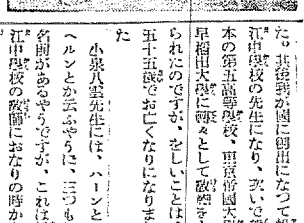 た。其後我が國に御出になつて松
江中學校の先生になり、次いで熊
本の第五高等學校、東京帝國大學
早稻田大學に轉々として敎鞭を
られたのですが、をしいことは
五十五歲でお亡くなりになりま
た
小泉八雲先生には、ハーンと
ヘルンとか云ふやうに、三つも
名前があるやうですが、これは
江中學校の敎師におなりの時か